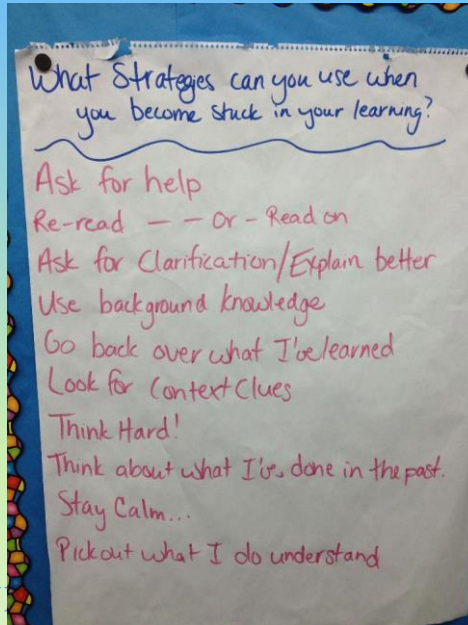 What Strategies can you use when
you become stuck in your learning?
Ask for help
Re-read - - Or - Read on
Ask for Clarification/Explain better
Use background knowledge
Go back over what I've learned
Look for Context Clues
Think Hard!
Think about what I've done in the past.
Stay Calm...
Pick out what I do understand